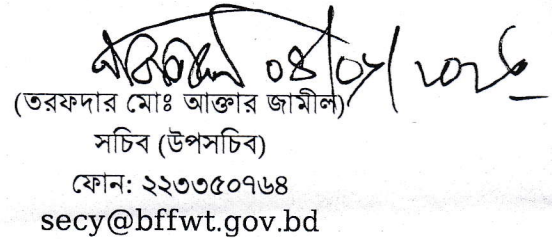 ০৪/০৮/২০২৬
(তরফদার মোঃ আক্তার জামীল)
সচিব (উপসচিব)
ফোন: ২২৩৩৫০৭৬৪
secy@bffwt.gov.bd